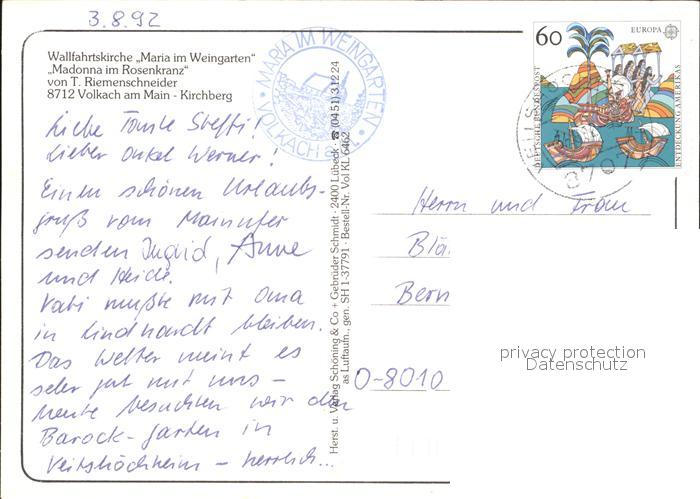 3.8.92
Wallfahrtskirche „Maria im Weingarten“
„Madonna im Rosenkranz“
von T. Riemenschneider
8712 Volkach am Main - Kirchberg
MARIA IM WEINGARTEN
VOLKACH
Liebe Tante Steffi!
Lieber Onkel Werner!
Einen schönen Urlaubs-
gruß vom Mainufer
senden Ingrid, Anne
und Heide.
Vati mußte mit Oma
in Lindhardt bleiben.
Das Wetter meint es
sehr gut mit uns –
heute besuchten wir den
Barock-garten in
Veitshöchheim – herrlich...
Herst. u. Verlag Schöning & Co + Gebrüder Schmidt · 2400 Lübeck · ☎ (0451) 31224
as Luftaufn., gen. SH 1-37791 · Bestell-Nr. Vol KL 6462
60
EUROPA
DEUTSCHE BUNDESPOST
ENTDECKUNG AMERIKAS
Herrn und Frau
Blä
Bern
O-8010
privacy protection
Datenschutz